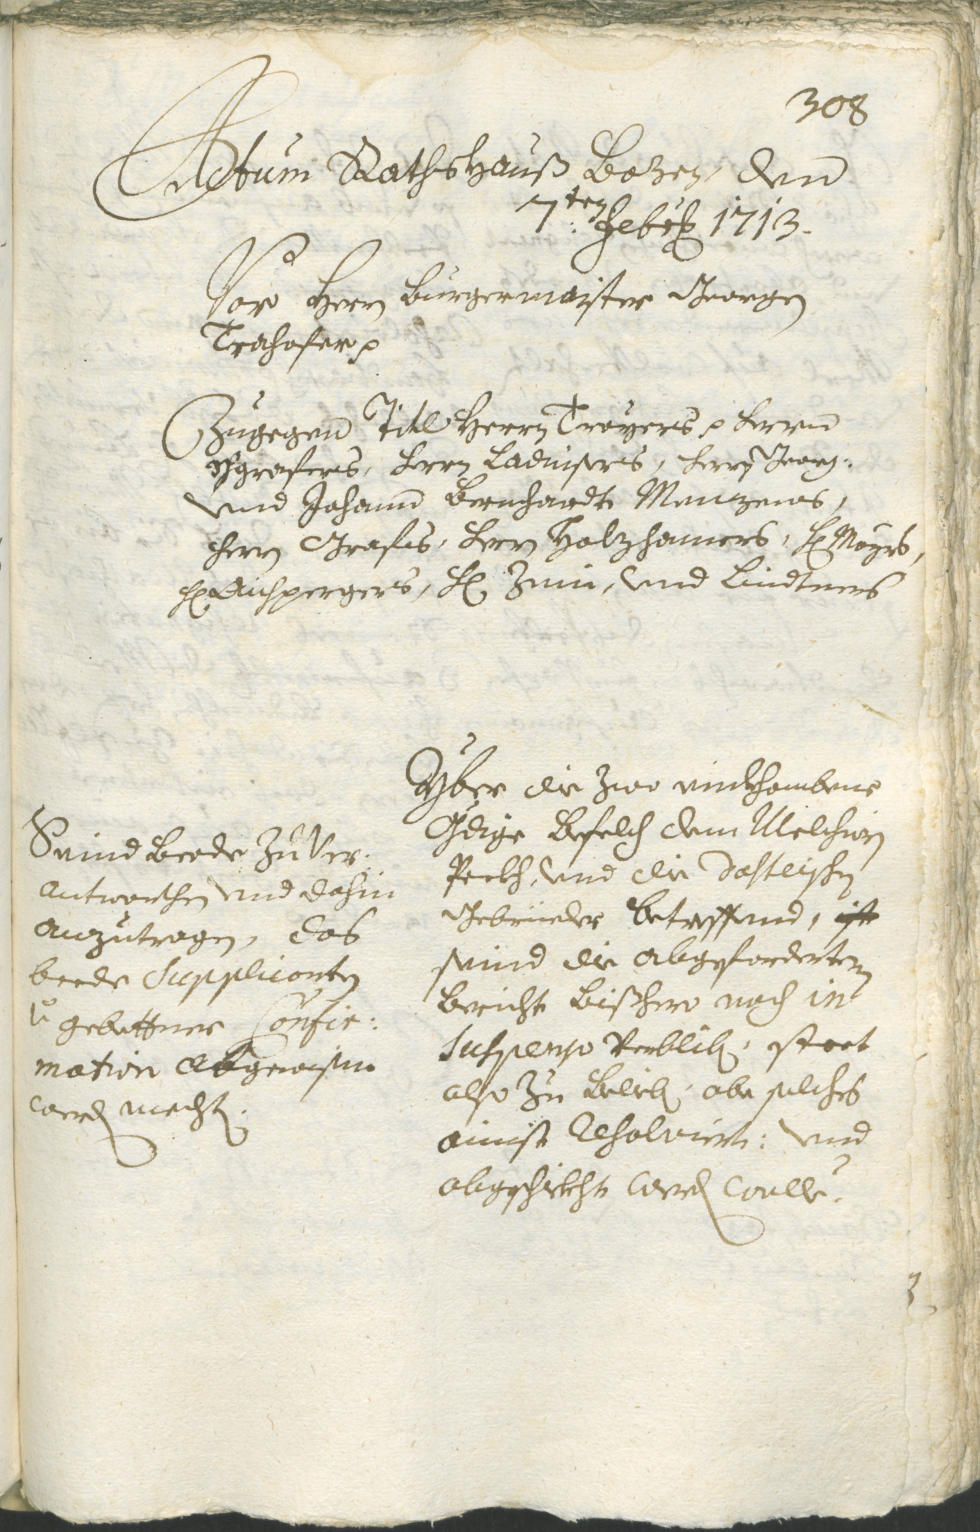 308
Actum Rathshauß Bozen, den
7ten: Febr: 1713.
Vor Herrn Burgermaister Georgen
Trahofer
Zugegen Titl Herrn Troyers, Herrn
Herrn Ladurners, Herrn Georg:
und Johann Bernhardt Menzens,
Herrn Grafls, Herrn Holzhamers, H: Mayrs,
H: Aichpergers, H: Zinn, und Lindtners
Yber die zwo einkhombene
Gdige Befelch dem Melchiorn
Pockh, und die
Gebrüeder betreffend, ist
seind die abgeforderten
Bericht bißhero noch in
Suspenso verblib:, steet
also zu Belieb: obe solches
ainist Resolviert: und
abgeschickht werd: wolle.
Seind Beede zu Ver:
antworthen und dahin
anzutragen, das
beede Supplicanten
gebettner Confir:
mation abgewisen
werd: mecht:
3